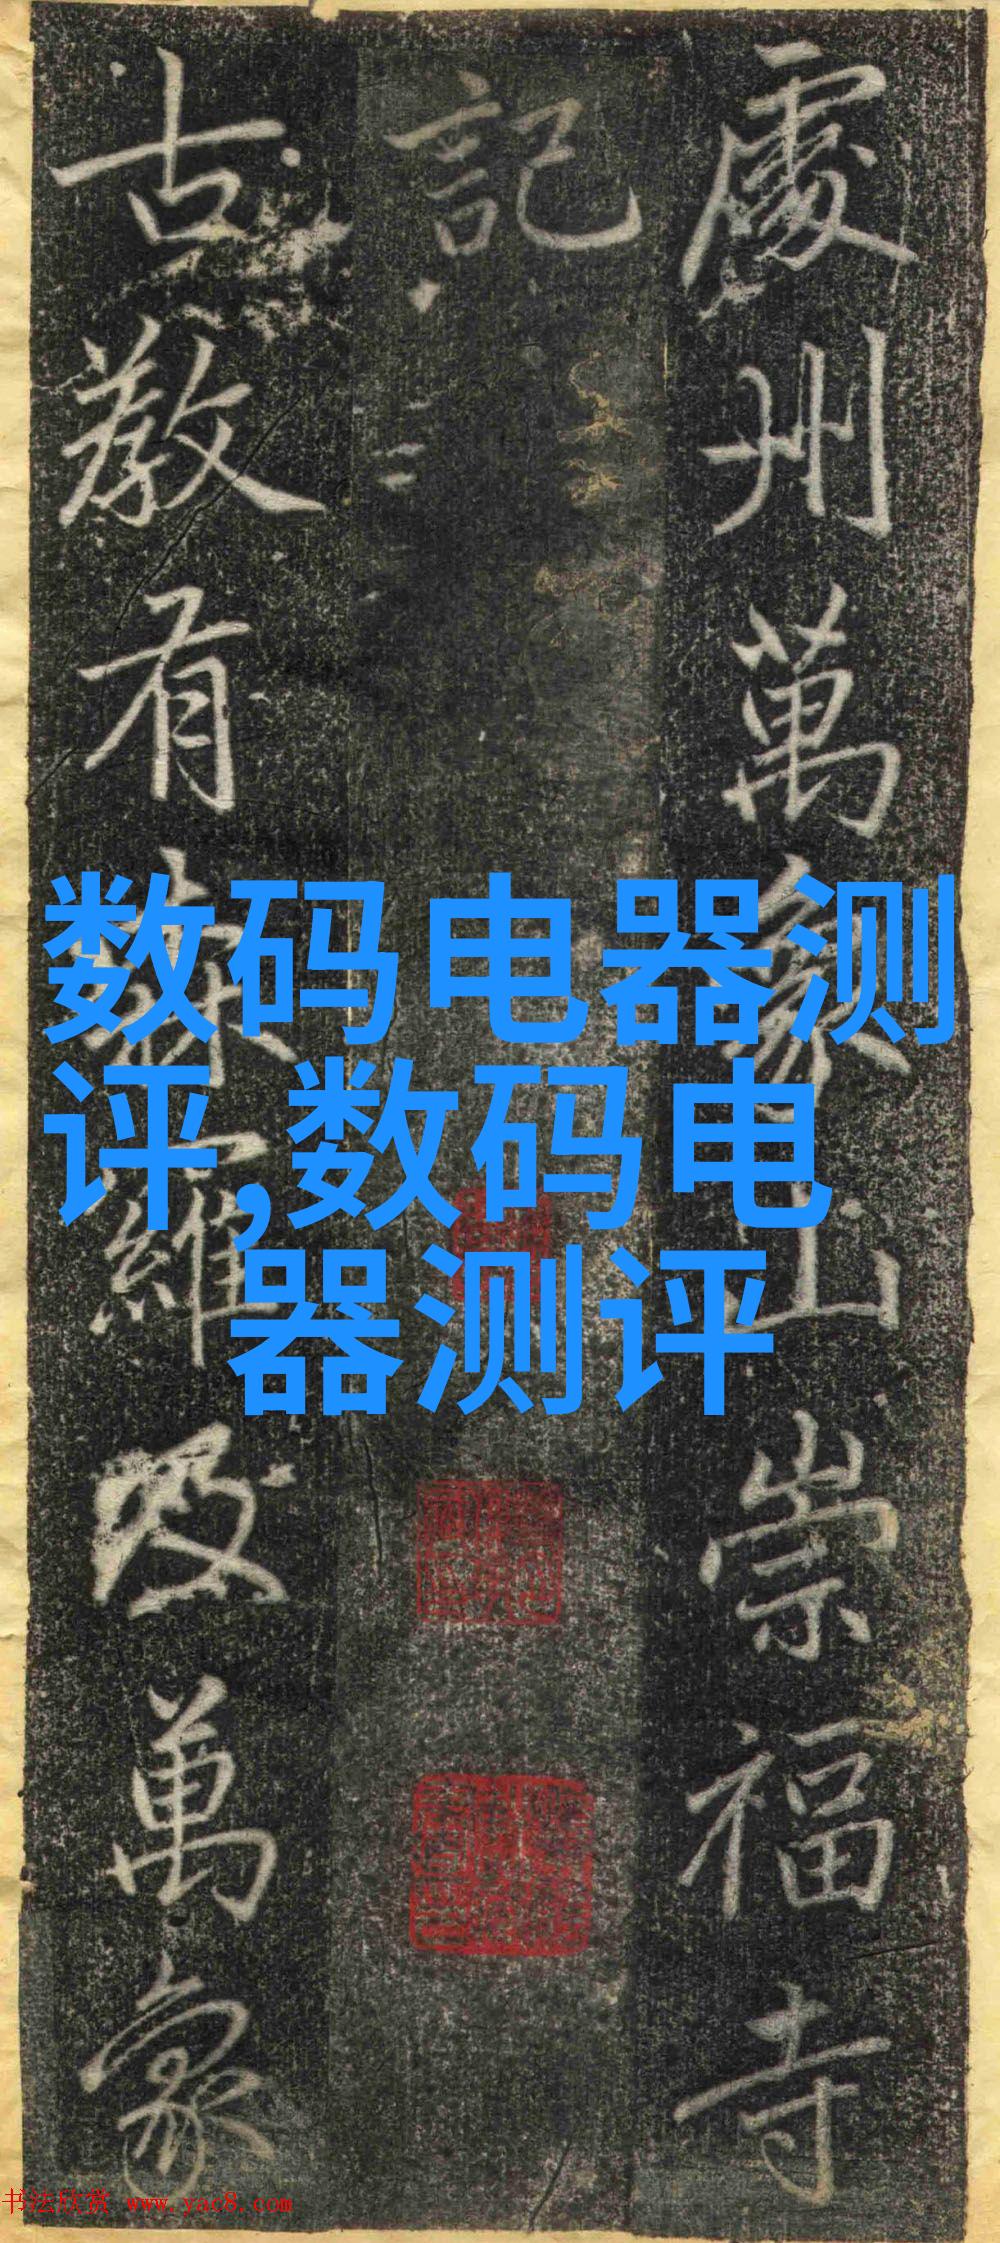 處州萬象山崇福寺
記
古教有森羅及萬象
数码电器测
评,数码电
器测评
书法欣赏 www.yac8.com